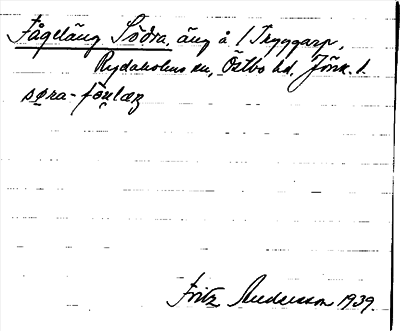 Fågeläng Södra, äng å 1 Tryggarp,
Rydaholms sn, Östbo hd. Jönk. l.
søra-fönlæŋ
Fritz Andersson 1939.